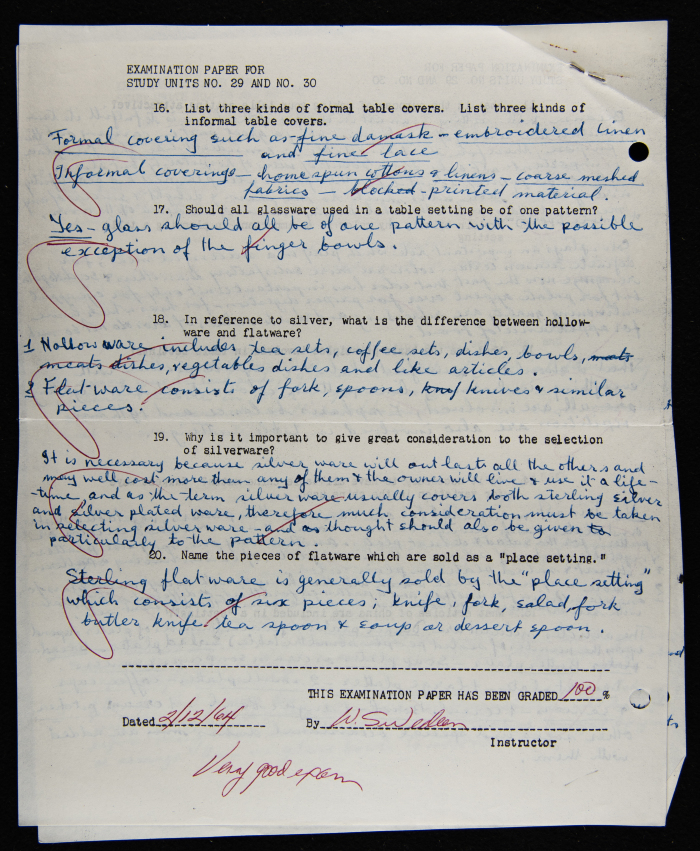 EXAMINATION PAPER FOR
STUDY UNITS NO. 29 AND NO. 30
16. List three kinds of formal table covers. List three kinds of
informal table covers.
Formal covering such as fine damask - embroidered linen
and fine lace
Informal coverings - homespun cottons & linens - coarse meshed
fabrics - blocked-printed material.
17. Should all glassware used in a table setting be of one pattern?
Yes - glass should all be of one pattern with the possible
exception of the finger bowls.
18. In reference to silver, what is the difference between hollow-
ware and flatware?
1 Hollow ware includes, tea sets, coffee sets, dishes, bowls, meats
meats dishes, vegetables dishes and like articles.
2 Flat ware consists of fork, spoons, knives & similar
pieces.
19. Why is it important to give great consideration to the selection
of silverware?
It is necessary because silver ware will out lasts all the others and
may well cost more than any of them & the owner will live & use it a life-
-time, and as the term silver ware usually covers both sterling silver
and silver plated ware, therefore much consideration must be taken
in selecting silver ware - and as thought should also be given to
particularly to the pattern.
20. Name the pieces of flatware which are sold as a "place setting."
Sterling flat ware is generally sold by the "place setting"
which consists of six pieces; knife, fork, salad fork
butler knife tea spoon & soup or dessert spoon.
THIS EXAMINATION PAPER HAS BEEN GRADED 100 %
Dated 2/12/64 By W. Swedeen
Instructor
Very good exam